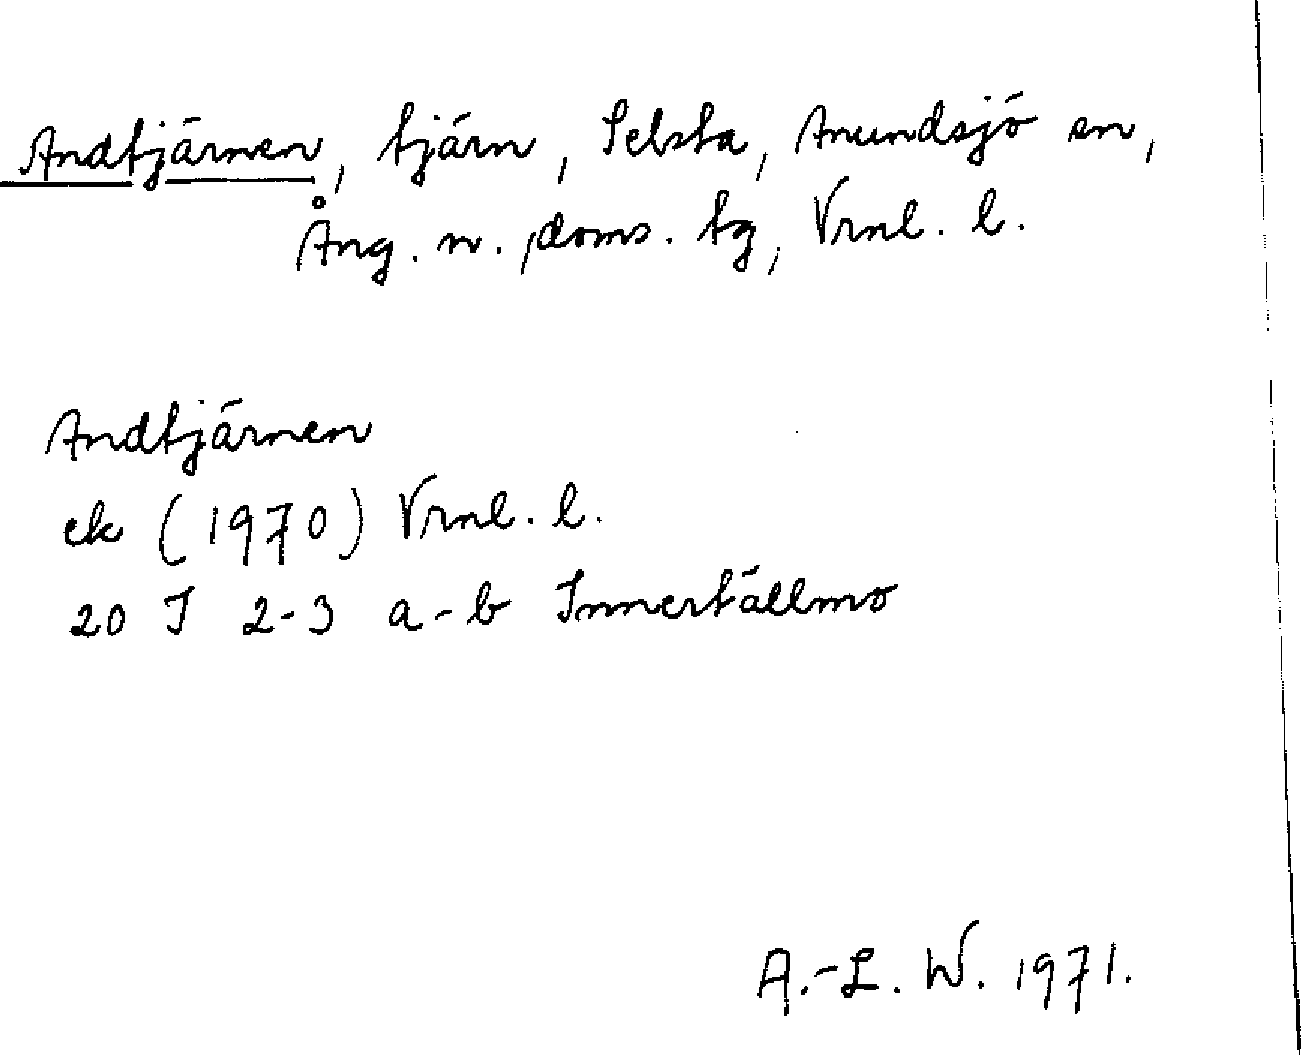 Andtjärnen, tjärn, Selsta, Anundsjö sn,
Ång. n., doms. tg, Vrnl. l.
Andtjärnen
ek (1970) Vrnl. l.
20 I 2-3 a-b Innertällmo
A.-L. W. 1971.